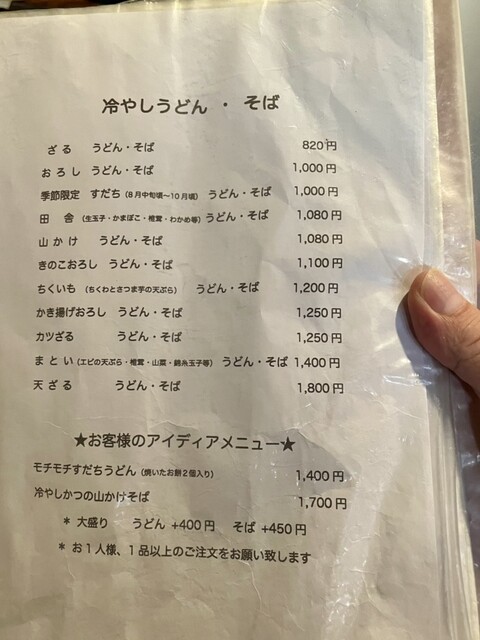 冷やしうどん ・ そば
ざる うどん・そば 820円
おろし うどん・そば 1,000円
季節限定 すだち(8月中旬頃〜10月頃) うどん・そば 1,000円
田舎 (生玉子・かまぼこ・椎茸・わかめ等) うどん・そば 1,080円
山かけ うどん・そば 1,080円
きのこおろし うどん・そば 1,100円
ちくいも (ちくわとさつま芋の天ぷら) うどん・そば 1,200円
かき揚げおろし うどん・そば 1,250円
カツざる うどん・そば 1,250円
まとい(エビの天ぷら・椎茸・山菜・錦糸玉子等) うどん・そば 1,400円
天ざる うどん・そば 1,800円
★お客様のアイディアメニュー★
モチモチすだちうどん(焼いたお餅2個入り) 1,400円
冷やしかつの山かけそば 1,700円
* 大盛り うどん +400円 そば +450円
* お1人様、1品以上のご注文をお願い致します